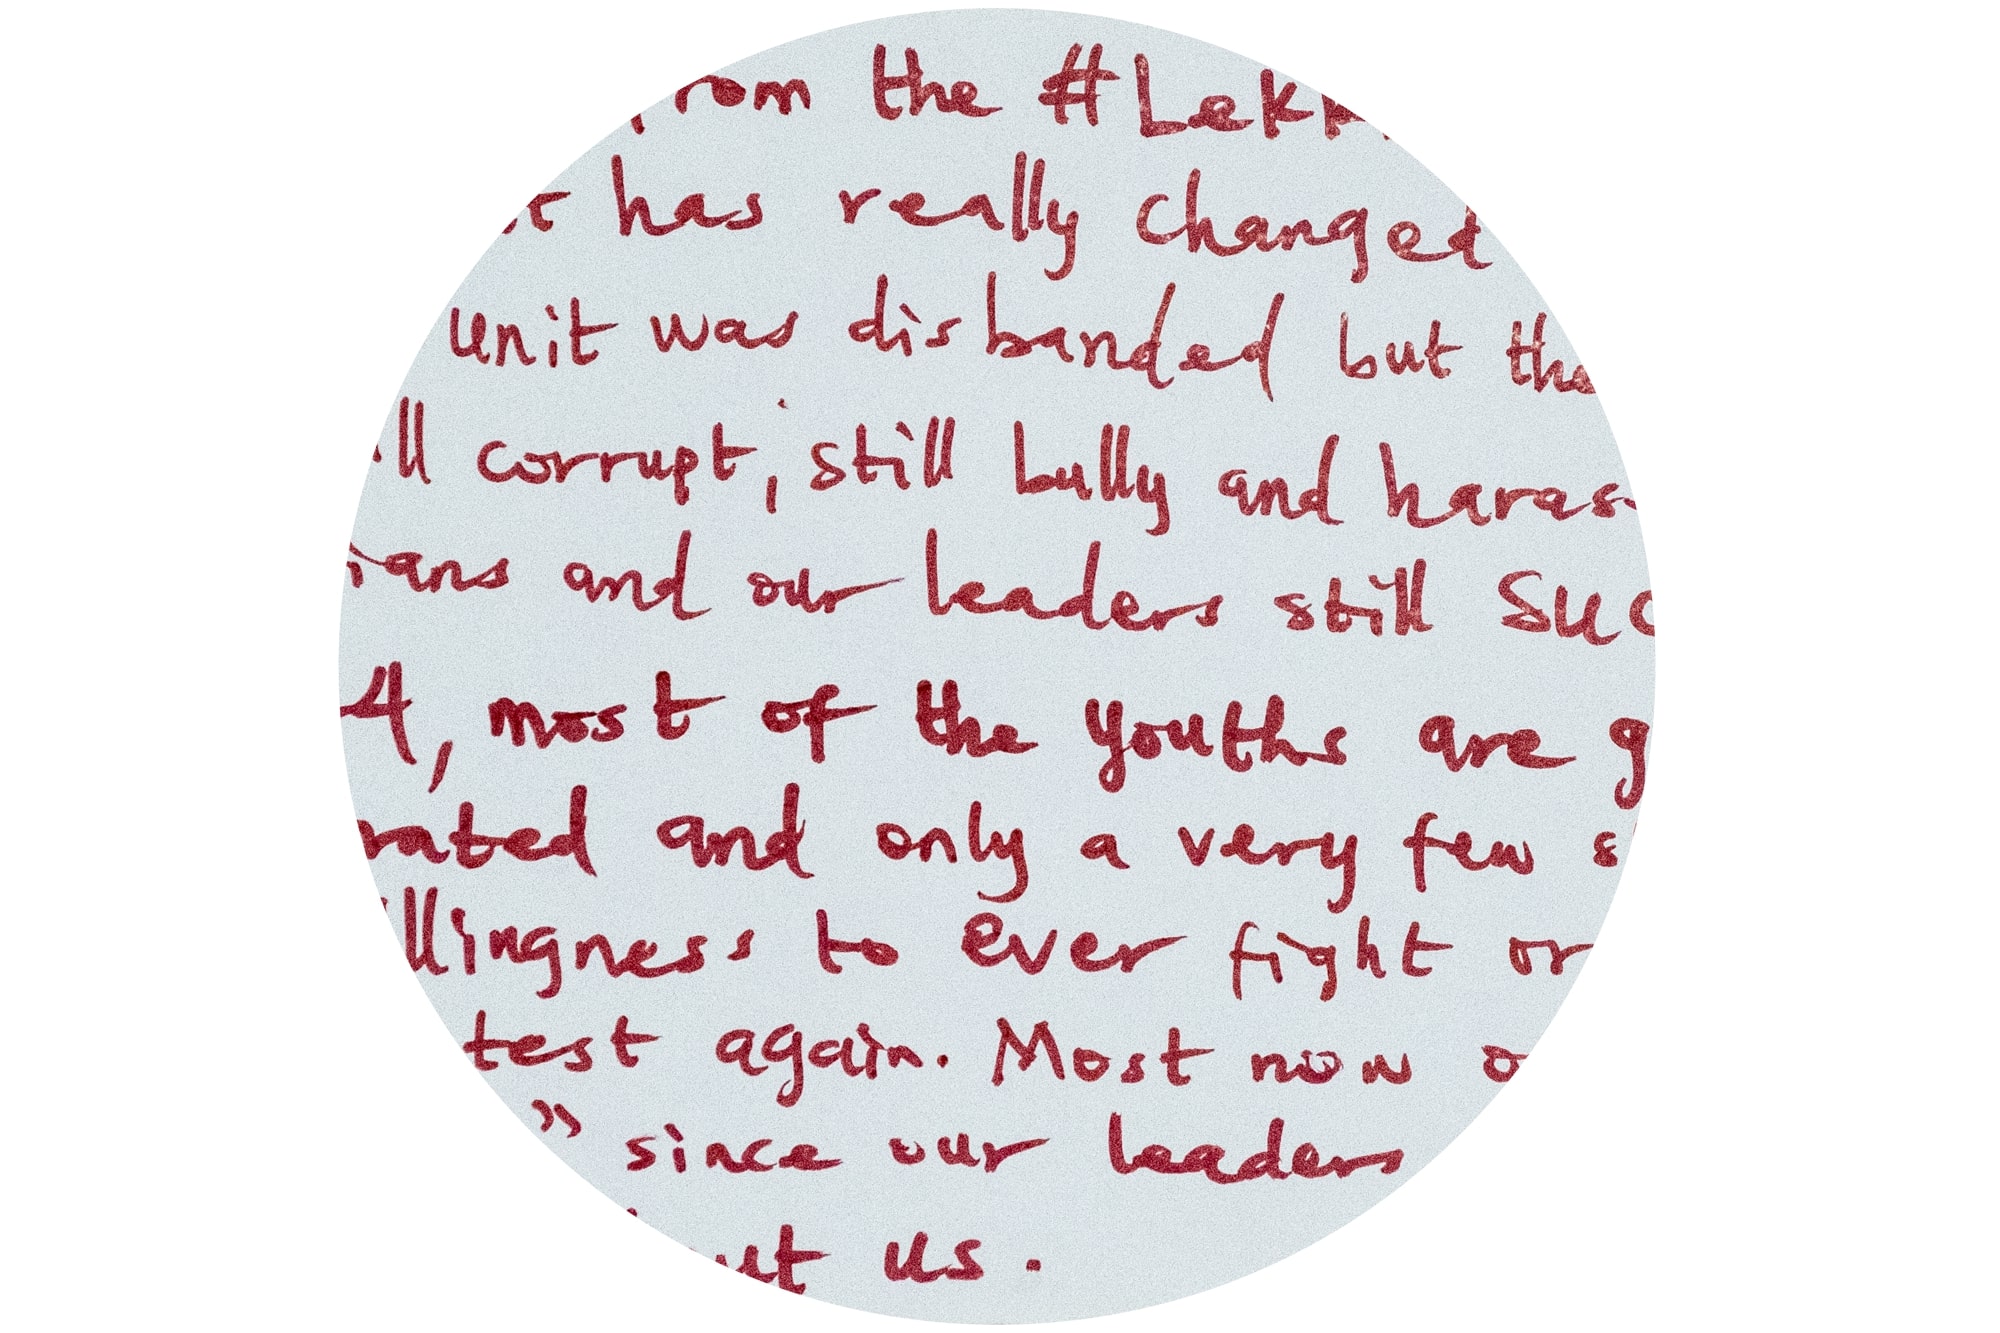 from the #Lekk
has really changed
unit was disbanded but the
corrupt, still bully and haras
and our leaders still suc
4, most of the youths are g
rated and only a very few s
illingness to ever fight or
test again. Most now o
" since our leaders
ut us.